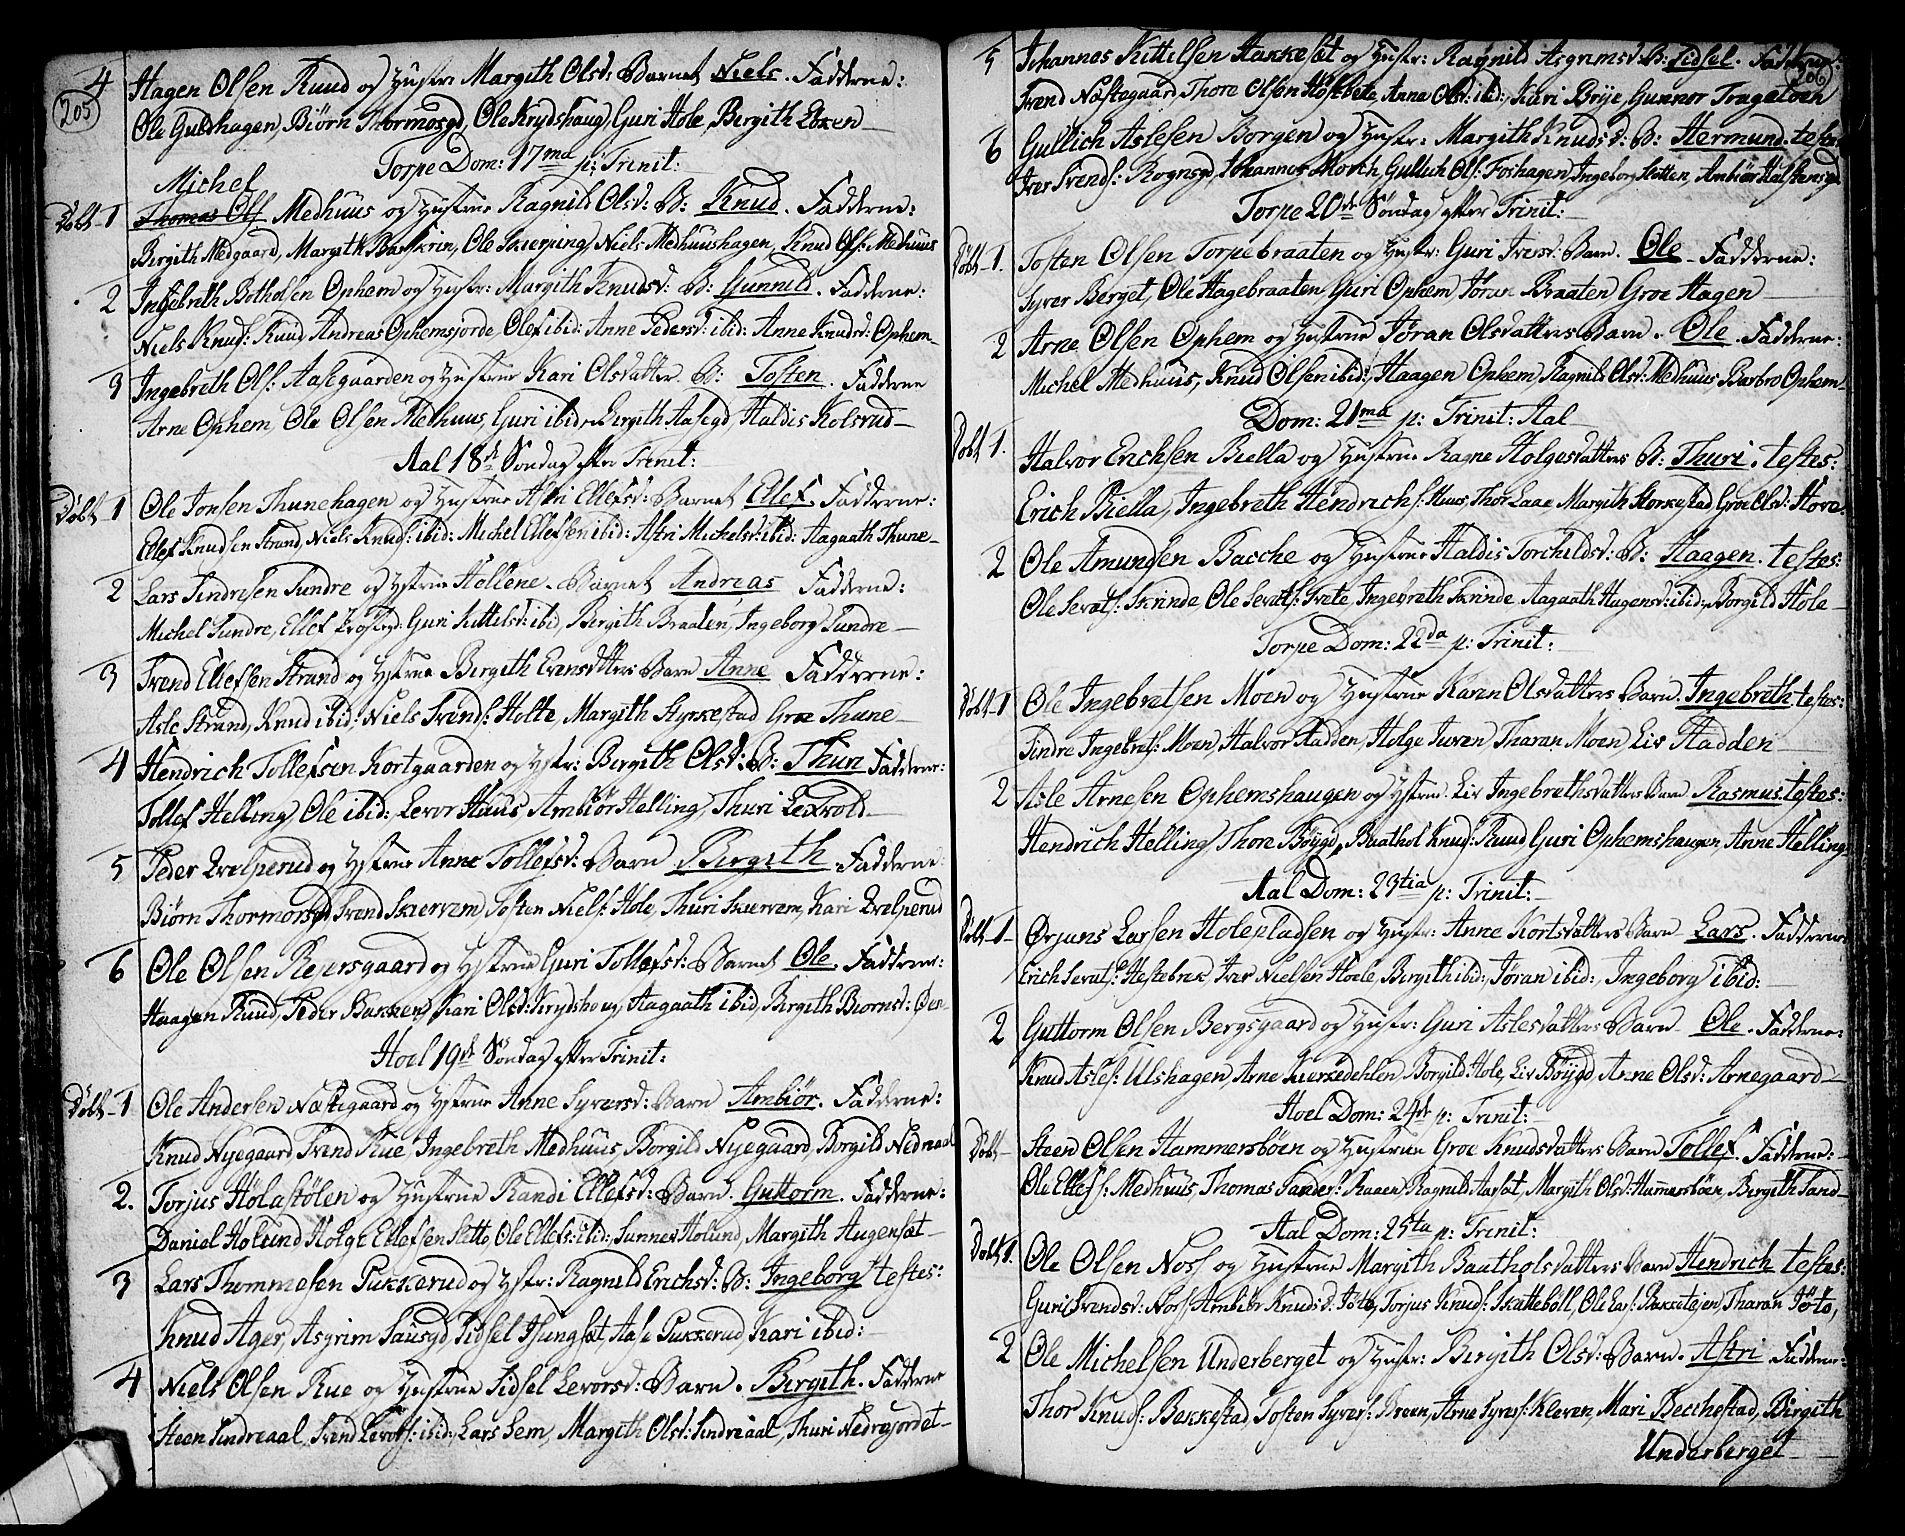 205
4 Hagen Olsen Ruud og Hustru Margith Olsd: Barnet Niels. Fadderne:
Ole Guldhagen, Biørn Thormosgd, Ole Krydshaug, Guri Hole, Bergith
Torpe Dom: 17ma p: Trinit:
Michel
Døbt 1 Thomas Ols Medhuus og Hustrue Ragnild Olsd: B: Knud. Fadderne:
Bergith Medgaard, Margith Baskrin, Ole Skierping, Niels Medhuushagen, Knud Ols: Medhuus
2 Ingebreth Botholsen Ophem og Hustr: Margith Knudsd: B: Gunnild. Fadderne:
Niels Knuds: Ruud, Andreas Ophemsjorde, Olef ibid: Anne Pedersd: ibid: Anne Knudsd: Ophem
9 Ingebreth Ols: Aasegaarden og Hustrue Kari Olsdatter B: Tosten. Fadderne
Arne Ophem, Ole Olsen Medhuus, Guri ibid, Bergith Aasegd, Haldis Kolsrud
Aal 18de Søndag efter Trinit:
Døbt 1 Ole Jonsen Thunehagen og Hustrue Astri Ellefsd: Barnet Ellef. Fadderne:
Ellef Knudsen Strand, Niels Knuds: ibid: Michel Ellefsen ibid: Astri Michelsd: ibid: Aagaath Thune
2 Lars Sindresen Sundre og Hustrue Hellene. Barnet Andreas Fadderne:
Michel Sundre, Ellef Prostgd: Guri Kittilsd: ibid, Birgith Braaten, Ingeborg Sundre
3 Svend Ellefsen Strand og Hustrue Bergith Evensdatters Barn Anne Fadderne:
Asle Strand, Knud ibid: Niels Svends: Holte, Margith Styrkestad Groe Thune
4 Hendrich Tollefsen Kortgaarden og Hustr: Bergith Olsd: B: Thuri Fadderne:
Tollef Helling, Ole ibid: Levor Huus Ambiør Helling, Thuri Lexvold
5 Peder Qvelperud og Hustrue Anne Tollefsd: Barn Bergith Fadderne
Biørn Thormorsgd, Svend Skiervem, Tosten Niels: Hole, Thuri Skiervem, Kari Qvelperud
6 Ole Olsen Reiersgaard og Hustrue Guri Tollefsd: Barnet Ole. Fadderne:
Haagen Ruud, Peder Bakken, Kari Olsd: Krydshaug, Aagaath ibid, Bergith Biornsd:
Hoel 19de Søndag efter Trinit:
Døbt 1 Ole Andersen Næstegaard og Hustrue Anne Syversd: Barn Ambiør. Fadderne:
Knud Nyegaard, Svend Rue, Ingebreth Medhuus, Borgild Nyegaard, Borgild Nedreaal
2. Torjus Hølastølen og Hustrue Randi Ellefsd: Barn Guttorm. Fadderne:
Daniel Hølund, Holge Ellefsen Sætto, Ole Ellefs: ibid: Sunner Hølund, Margith Haugensæt
3 Lars Thommesen Pukkerud og Hustr: Ragnild Erichsd: B: Ingeborg testes:
Knud Ager, Asgrim Sausgd, Sidsel Tsungsæt, Aase Pukkerud, Kari ibid:
4 Niels Olsen Rue og Hustrue Sidsel Levorsd: Barn. Bergith. Fadderne
Steen Sindreaal, Svend Levors: ibid: Lars Sem, Margith Olsd: Sindreaal, Thuri Nedrejordet
206
5 Johannes Kittilsen Hakkesæt og Hustr: Ragnild Asgrimsd: B: Sidsel. Fadderne:
Svend Næstegaard, Thore Olsen Høsebete, Anne Olsd: ibid: Kari Brye, Gunnor Trageteen
6 Gullich Aslesen Borgen og Hustr: Margith Knudsd: B: Hermund. testes
Iver Svends: Rognsgd, Johannes Morch, Gullich Ols: Foshagen, Ingeborg Slitten, Ambiør Halstensgd
Torpe 20de Søndag efter Trinit:
Døbt 1. Tosten Olsen Torpebraaten og Hustr: Guri Iversd: Barn. Ole. Fadderne:
Syver Berget, Ole Hagebraaten, Guri Ophem, Jøran Braaten, Groe Hagen
2 Arne Olsen Ophem og Hustrue Jøran Olsdatters Barn. Ole. Fadderne:
Michel Medhuus, Knud Olsen ibid: Haagen Ophem, Ragnild Olsd: Medhuus Barbro Ophem
Dom: 21ma p: Trinit: Aal
Døbt 1. Halvor Erichsen Biella og Hustrue Ragne Holgesdatters B: Thuri. testes:
Erich Biella, Ingebreth Hendrichs: Huus, Thor Laae Margith Storkestad Groe Olsd: Hove
2 Ole Amundsen Bacche og Hustrue Haldis Torchildsd: B: Haagen. testes:
Ole Sevats: Skrinde, Ole Sevats: Trete, Ingebreth Skrinde Aagaath Hagensd: ibid: Borgild Hole
Torpe Dom: 22da p: Trinit:
Døbt 1 Ole Ingebretsen Moen og Hustrue Karen Olsdatters Barn. Ingebreth testes:
Sindre Ingebrets: Moen, Halvor Hadden, Holge Juven Tharan Moen Liv Hadden
2 Asle Arnesen Ophemshaugen og Hustrue Liv Ingebrethsdatters Barn Rasmus. testes:
Hendrich Helling, Thore Bøygd, Baathol Knuds: Ruud Guri Ophemshaugen, Anne Helling
Aal Dom: 23tia p: Trinit:
Døbt 1 Ørjans Larsen Holepladsen og Hustr: Anne Kortsdatters Barn Lars. Fadderne
Erich Sevats: Hestebrek Iver Nielsen Hoele, Bergith ibid: Jøran ibid: Ingeborg ibid:
2 Guttorm Olsen Bergsgaard og Hustr: Guri Aslesdatters Barn Ole. Fadderne:
Knud Asles: Ulshagen, Arne Kirkedehlen, Borgild Hole, Liv Bøygd, Anne Olsd: Arnegaard
Hoel Dom: 24de p: Trinit:
Døbt Steen Olsen Hammersbøen og Hustrue Groe Knudsdatters Barn Tollef. Fadderne:
Ole Ellefs: Medhuus, Thomas Sanders: Raaen, Ragnild Aarsæt, Margith Olsd: Hammersbøen, Bergith Sand
Aal Dom: 25ta p: Trinit:
Døbt 1. Ole Olsen Noss og Hustrue Margith Baatholsdatters Barn Hendrich testes:
Guri Svendsd: Noss, Ambiør Knudsd: Jøto, Torjus Knuds: Skattebøll, Ole Lars: Bakketejen, Tharan Jøto,
2 Ole Michelsen Underberget og Hustr: Bergith Olsd: Barn. Astri Fadderne:
Thor Knuds: Bakkestad, Tosten Syvers: Breen, Arne Syvers: Kleven, Mari Becchestad, Birgith
Underberget